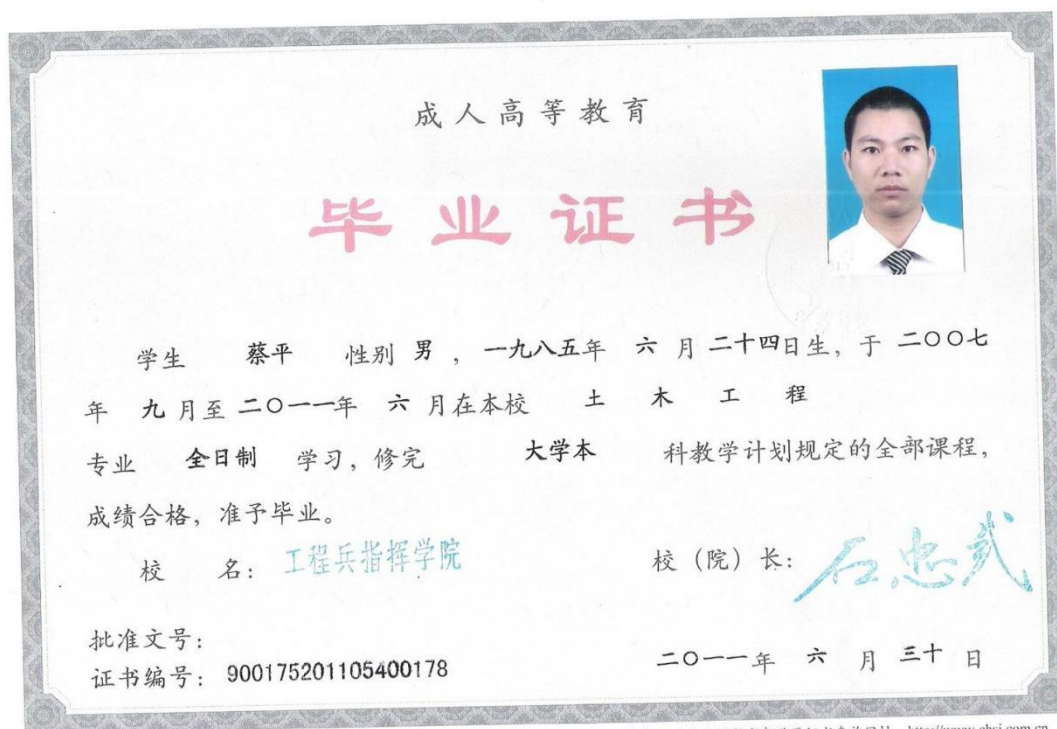 成人高等教育
毕业证书
学生 蔡平 性别 男 ，一九八五年 六 月 二十四日生，于 二〇〇七
年 九 月至 二〇一一年 六 月在本校 土 木 工 程
专业 全日制 学习，修完 大学本 科教学计划规定的全部课程，
成绩合格，准予毕业。
校 名： 工程兵指挥学院 校（院）长： 石忠武
批准文号：
证书编号： 900175201105400178 二〇一一年 六 月 三十 日
http://www.chsi.com.cn